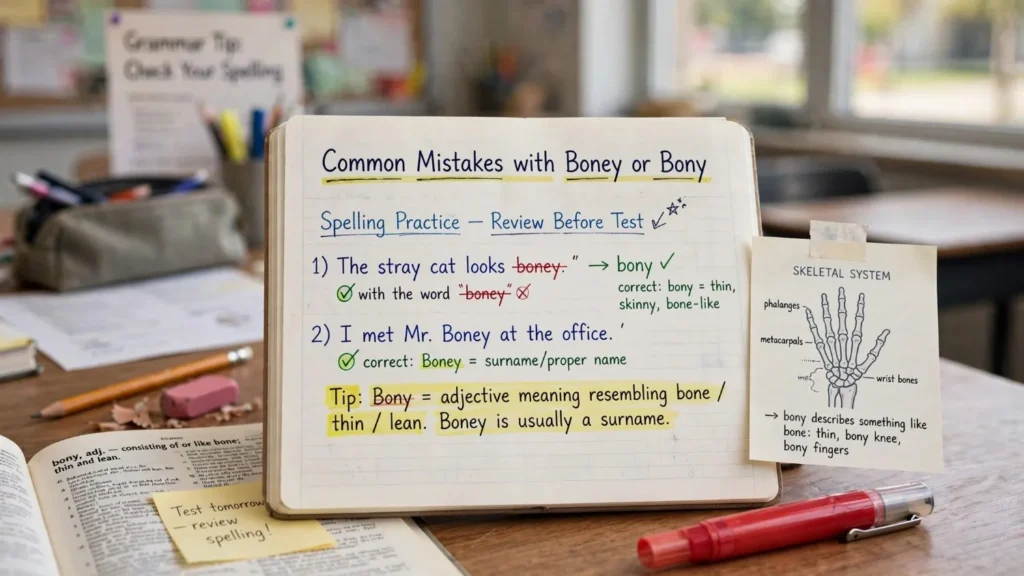 Grammar Tip:
Check Your Spelling
Common Mistakes with Boney or Bony
Spelling Practice — Review Before Test
1) The stray cat looks boney. " → bony ✓
with the word "boney"
correct: bony = thin,
skinny, bone-like
2) I met Mr. Boney at the office. '
correct: Boney = surname/proper name
Tip: Bony = adjective meaning resembling bone /
thin / lean. Boney is usually a surname.
SKELETAL SYSTEM
phalanges
metacarpals
wrist bones
→ bony describes something like
bone: thin, bony knee,
bony fingers
bony, adj. — consisting of or like bone;
thin and lean.
Test tomorrow
— review
spelling!